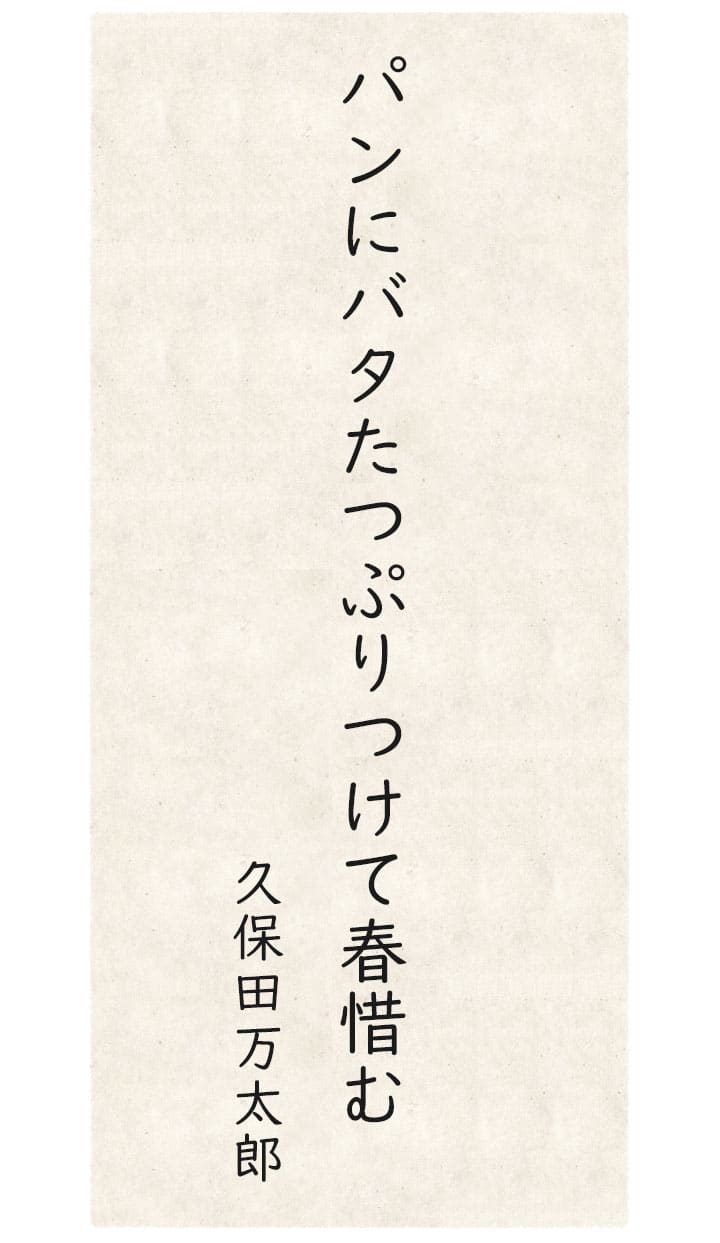 パンにバタたつぷりつけて春惜む
久保田万太郎